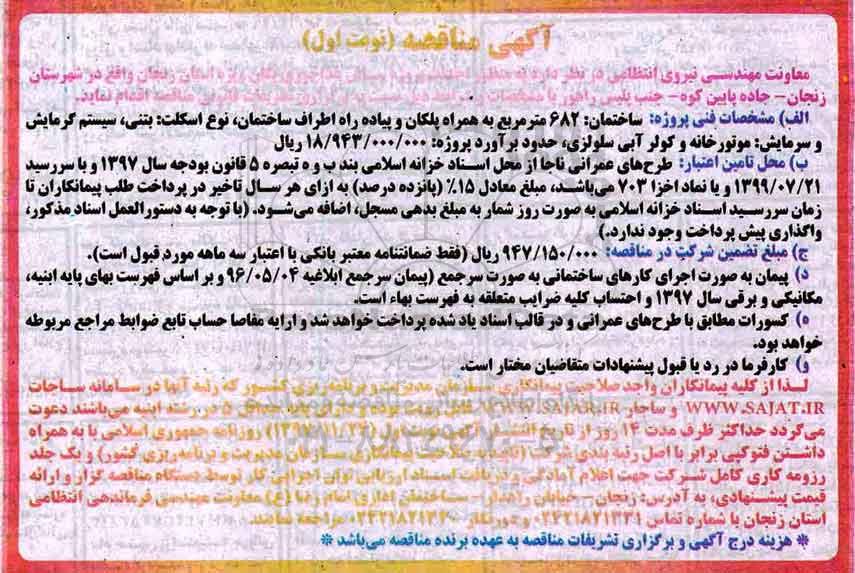 آگهی مناقصه (نوبت اول)
معاونت مهندسی نیروی انتظامی در نظر دارد به منظور یگان ویژه استان زنجان واقع در شهرستان
زنجان- جاده پایین کوه- جنب پلیس راهور با مشخصات و شرایط ذیل نسبت به برگزاری تشریفات قانونی مناقصه اقدام نماید.
الف) مشخصات فنی پروژه: ساختمان: ۶۸۲ مترمربع به همراه پلکان و پیاده راه اطراف ساختمان، نوع اسکلت: بتنی، سیستم گرمایش
و سرمایش: موتورخانه و کولر آبی سلولزی، حدود برآورد پروژه: ۱۸/۹۴۳/۰۰۰/۰۰۰ ریال
ب) محل تامین اعتبار: طرح‌های عمرانی ناجا از محل اسناد خزانه اسلامی بند ب و ه تبصره ۵ قانون بودجه سال ۱۳۹۷ و با سررسید
۱۳۹۹/۰۷/۲۱ و با نماد اخزا ۷۰۳ می‌باشد، مبلغ معادل ۱۵٪ (پانزده درصد) به ازای هر سال تاخیر در پرداخت طلب پیمانکاران تا
زمان سررسید اسناد خزانه اسلامی به صورت روز شمار به مبلغ بدهی مسجل، اضافه می‌شود. (با توجه به دستورالعمل اسناد مذکور،
واگذاری پیش پرداخت وجود ندارد.)
ج) مبلغ تضمین شرکت در مناقصه: ۹۴۷/۱۵۰/۰۰۰ ریال (فقط ضمانتنامه معتبر بانکی با اعتبار سه ماهه مورد قبول است).
د) پیمان به صورت اجرای کارهای ساختمانی به صورت سرجمع (پیمان سرجمع ابلاغیه ۹۶/۰۵/۰۴ و بر اساس فهرست بهای پایه ابنیه،
مکانیکی و برقی سال ۱۳۹۷ و احتساب کلیه ضرایب متعلقه به فهرست بهاء است.
ه) کسورات مطابق با طرح‌های عمرانی و در قالب اسناد یاد شده پرداخت خواهد شد و ارایه مفاصا حساب تابع ضوابط مراجع مربوطه
خواهد بود.
و) کارفرما در رد یا قبول پیشنهادات متقاضیان مختار است.
لذا از کلیه پیمانکاران واجد صلاحیت پیمانکاری سازمان مدیریت و برنامه ریزی کشور که رتبه آنها در سامانه ساجات
WWW.SAJAT.IR و ساجار WWW.SAJAR.IR قابل رویت بوده و دارای پایه حداقل ۵ در رشته ابنیه می‌باشند دعوت
می‌گردد حداکثر ظرف مدت ۱۴ روز از تاریخ انتشار آگهی نوبت اول (۱۳۹۷/۱۱/۲۳) روزنامه جمهوری اسلامی با به همراه
داشتن فتوکپی برابر با اصل رتبه بندی شرکت (تایید صلاحیت پیمانکاری سازمان مدیریت و برنامه‌ریزی کشور) و یک جلد
رزومه کاری کامل شرکت جهت اعلام آمادگی و دریافت اسناد ارزیابی توان اجرایی کار توسط دستگاه مناقصه گزار و ارائه
قیمت پیشنهادی، به آدرس: زنجان- خیابان راهدار- ساختمان اداری امام رضا (ع) معاونت مهندسی فرماندهی انتظامی
استان زنجان با شماره تماس ۰۲۴۲۱۸۲۱۳۳۱ و دورنگار ۰۲۴۲۱۸۲۱۳۳۰ مراجعه نمایند.
* هزینه درج آگهی و برگزاری تشریفات مناقصه به عهده برنده مناقصه می‌باشد *